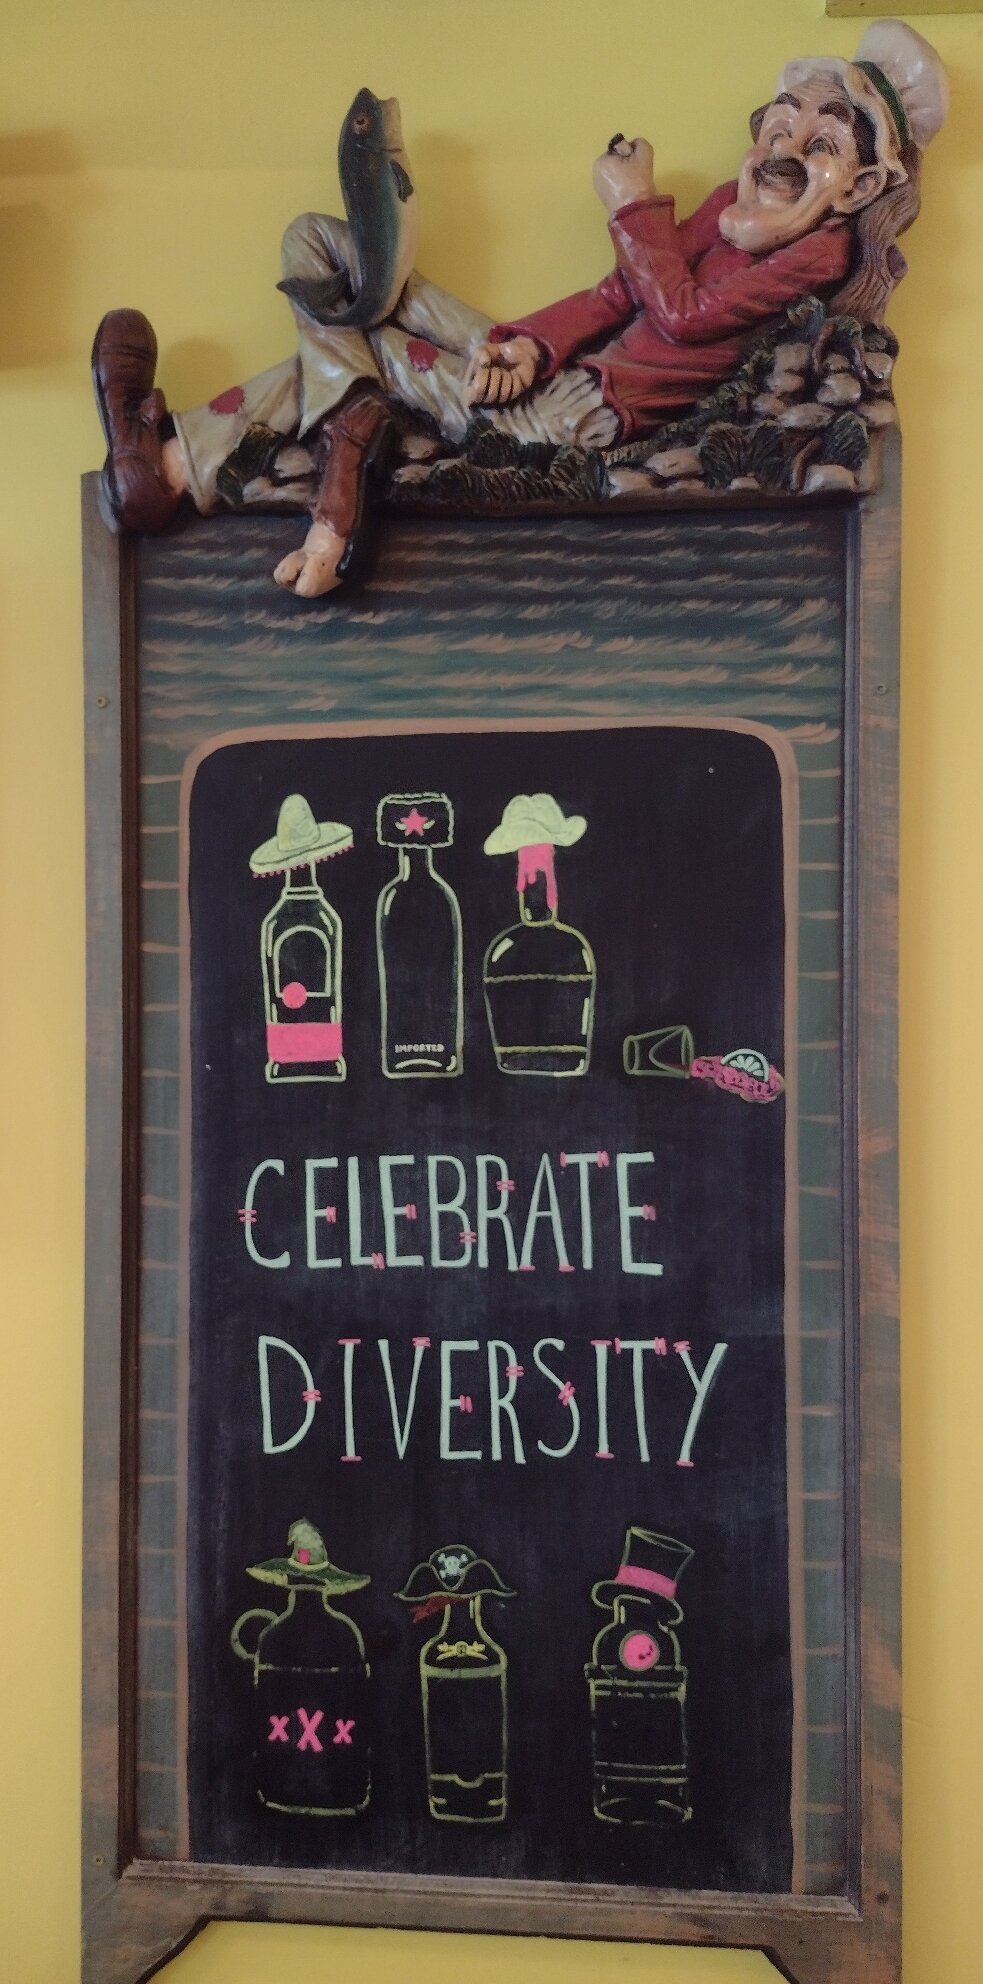 IMPORTED
CELEBRATE
DIVERSITY
xXx